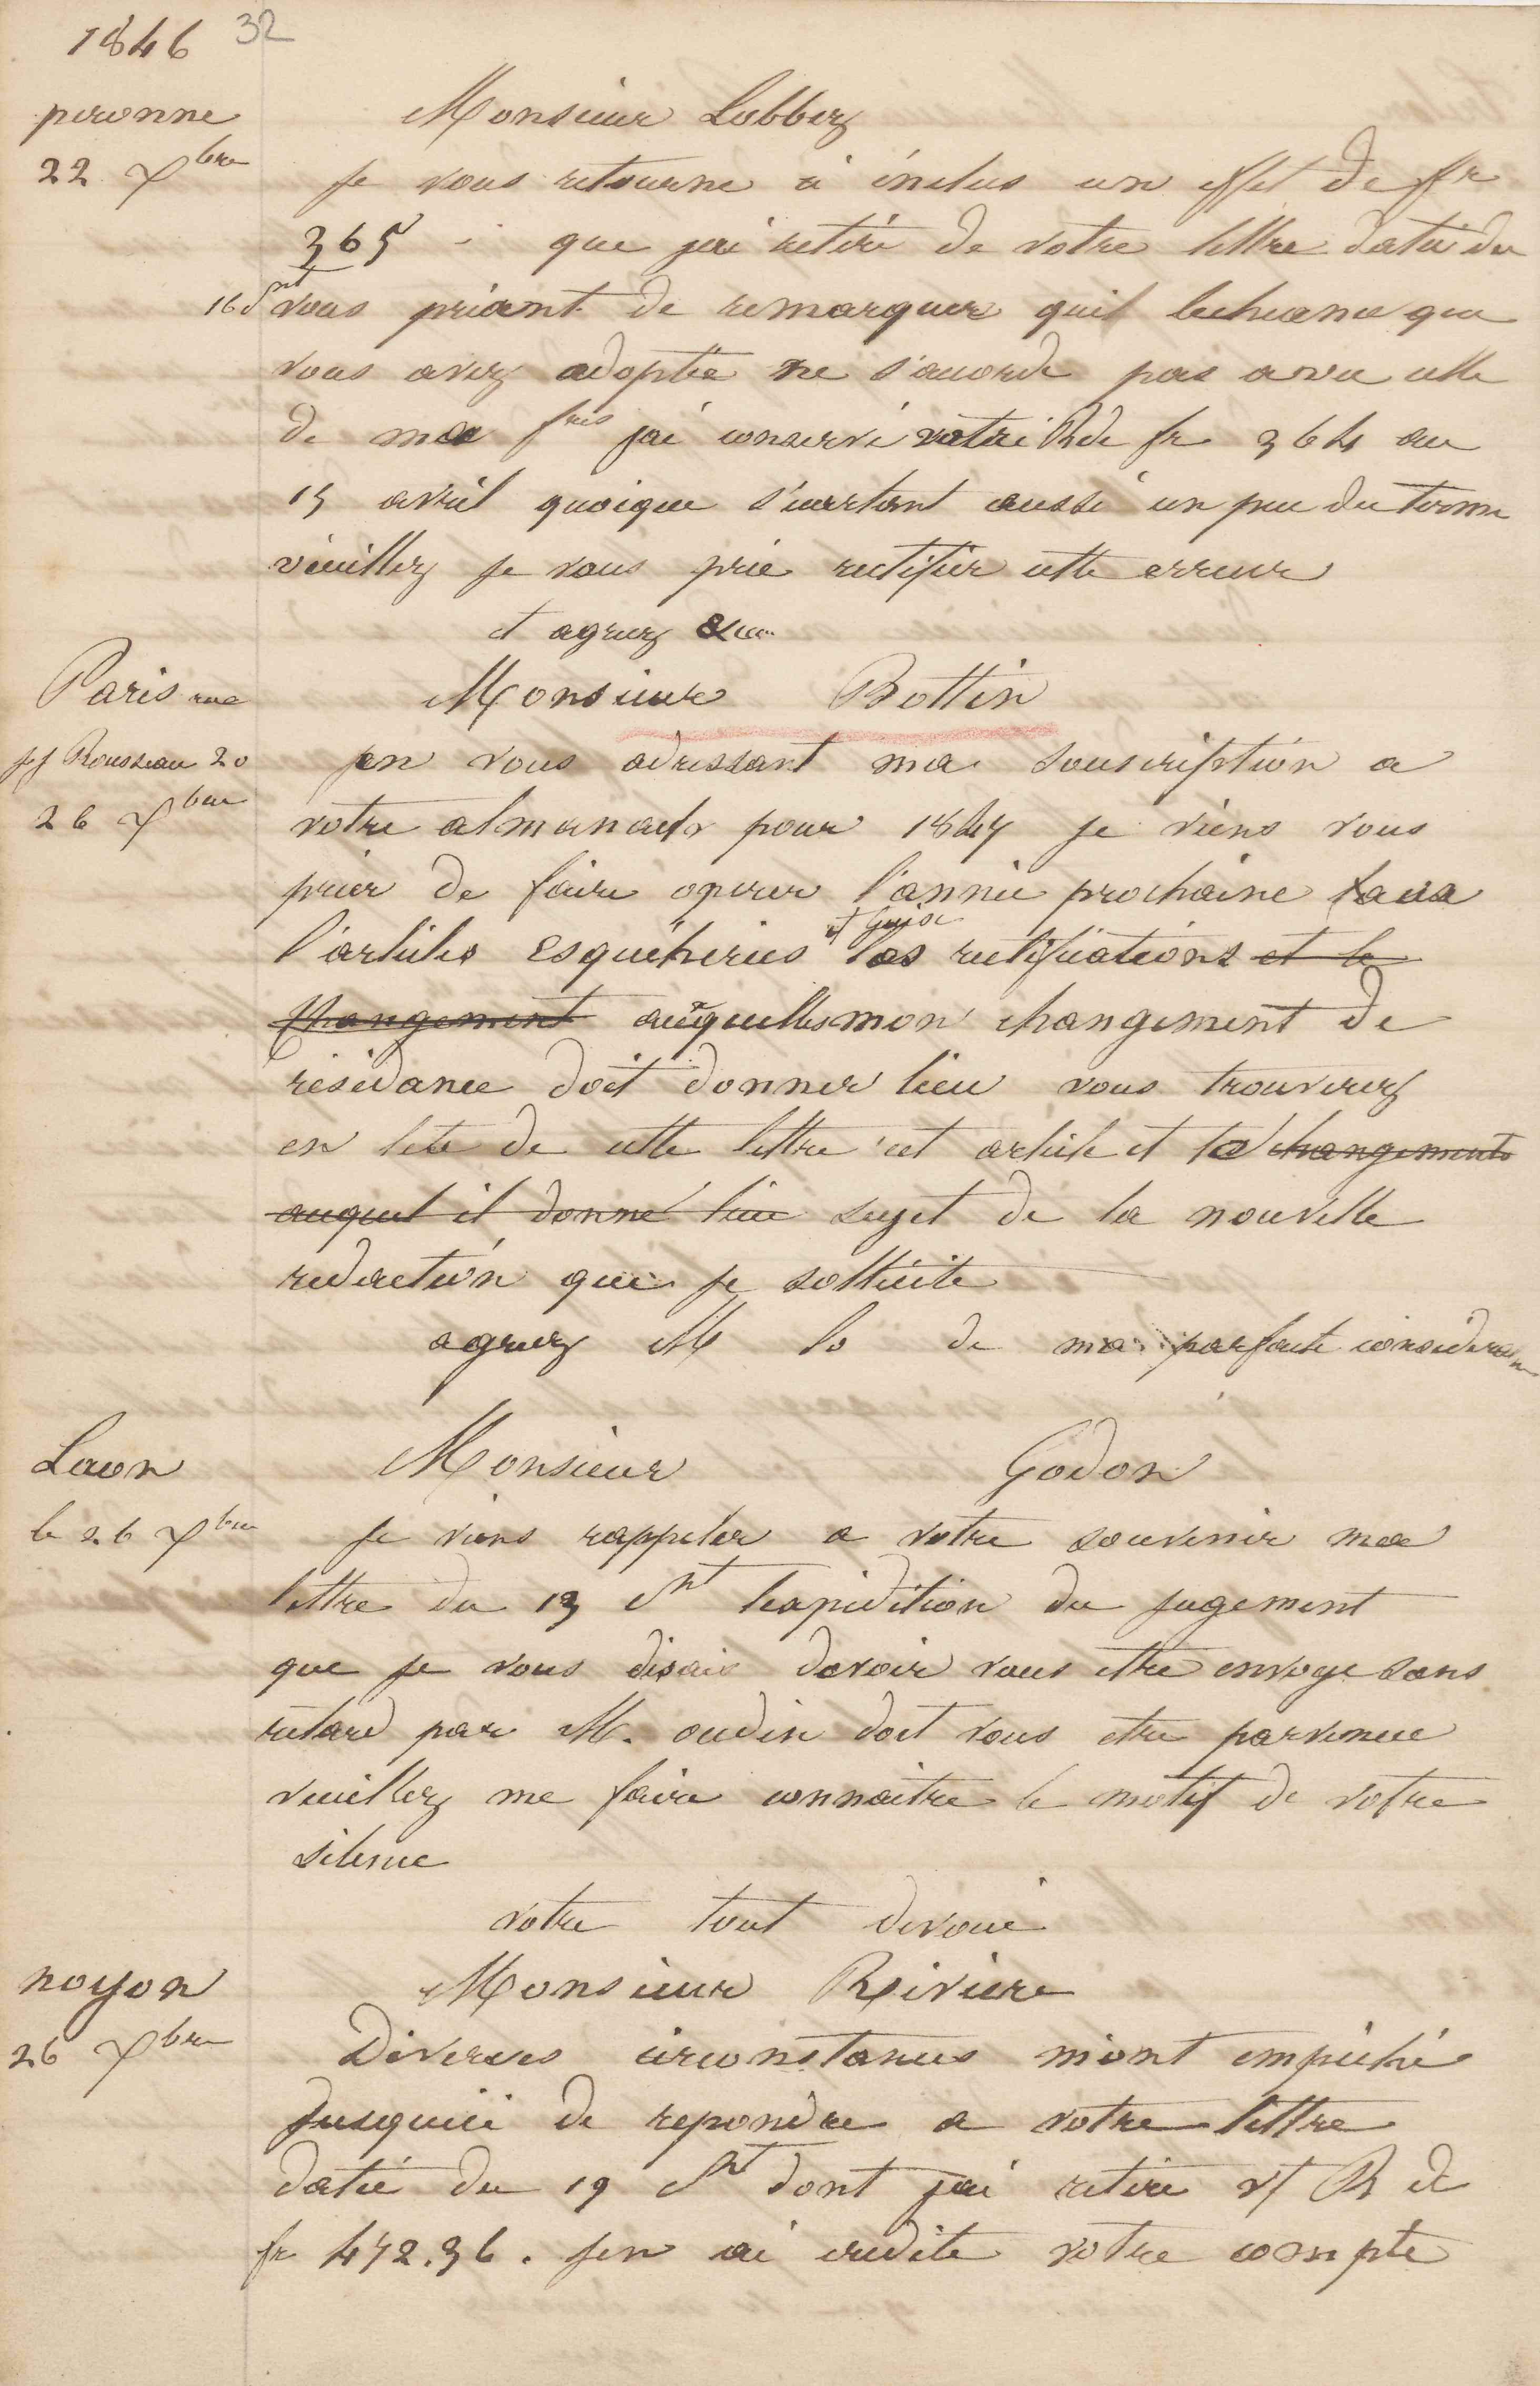 1846 32
peronne
22 Xbre
Monsieur Lobberz
Je vous retourne ci inclus un effet de fr
365 - que jai retiré de votre lettre datée du
16 dnt vous priant de remarquer quil lecheance que
vous avez adoptée ne s'acorde pas avec celle
de ma fre jai conservé votre R de fr 364 au
15 avril quoique s'ecartant aussi un peu du terme
veuillez je vous prie rectifier cette erreur
et agreez &c
Paris rue
jj Rousseau 20
26 Xbre
Monsieur Bottin
en vous adressant ma souscription a
votre almanach pour 1847 je viens vous
prier de faire operer l'année prochaine sous
l'articles esquéheries et Guise les rectifications et le
changement auxquelles mon changement de
residance doit donner lieu vous trouverez
en tete de cette lettre cet article et le changements
auquel il donne lieu sujet de la nouvelle
redaction que je sollicite
agreez M lo de ma parfaite consideraon
Laon
le 26 Xbre
Monsieur Godon
Je viens rappeler a votre souvenir ma
lettre du 13 dnt lexpedition du jugement
que je vous disais devoir vous etre envoye sans
retard par M. oudin doit vous etre parvenue
veuillez me faire connaitre le motif de votre
silence
votre tout devoué
noyon
26 Xbre
Monsieur Riviere
Diverses circonstances mont empéché
Jusquici de repondre a votre lettre
datée du 19 dnt dont jai retiré vf R de
fr 472.36. jen ai credité votre compte